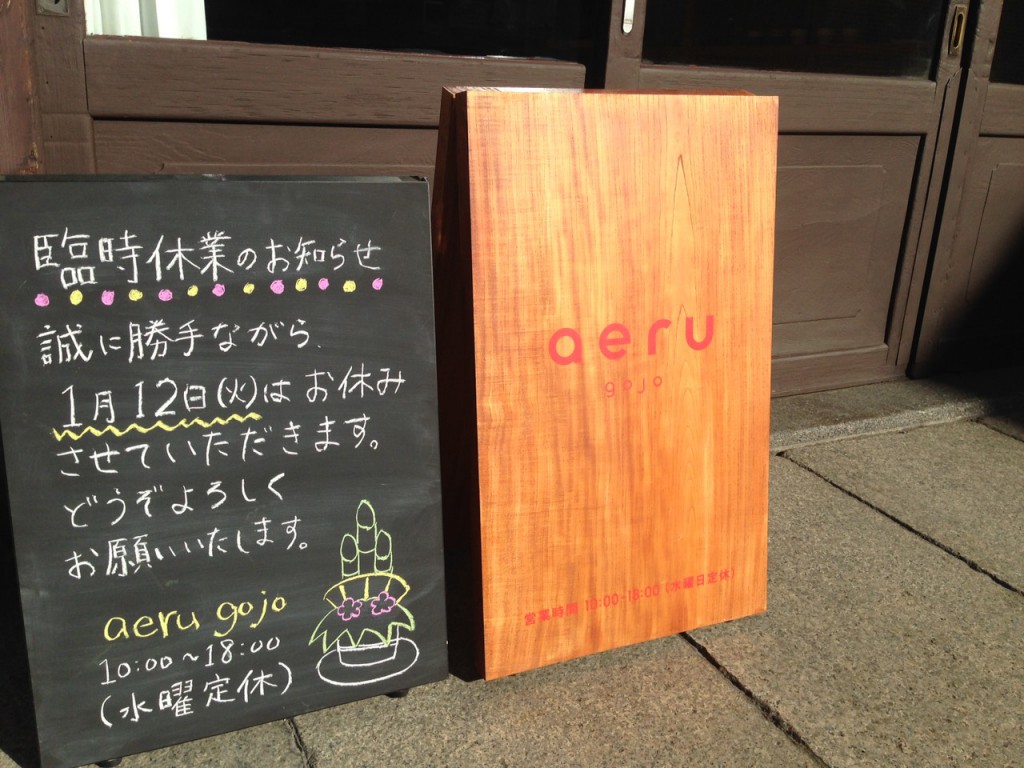 臨時休業のお知らせ
誠に勝手ながら、
1月12日(火)はお休み
させていただきます。
どうぞよろしく
お願いいたします。
aeru gojo
10:00~18:00
(水曜定休)
aeru
gojo
営業時間 10:00-18:00 (水曜日定休)